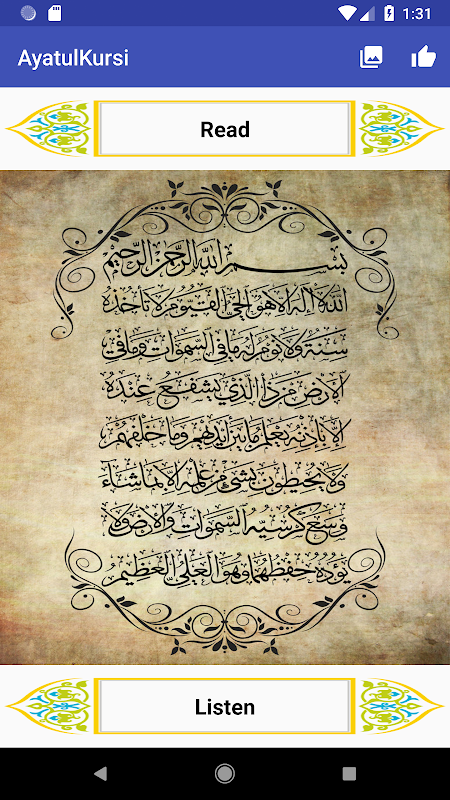 1:31
AyatulKursi
Read
بسم الله الرحمن الرحيم
الله لا اله الا هو الحي القيوم لا تأخذه
سنة ولا نوم له ما في السموات وما في
الارض من ذا الذي يشفع عنده
الا باذنه يعلم ما بين ايديهم وما خلفهم
ولا يحيطون بشيء من علمه الا بما شاء
وسع كرسيه السموات والارض ولا
يؤده حفظهما وهو العلي العظيم
Listen